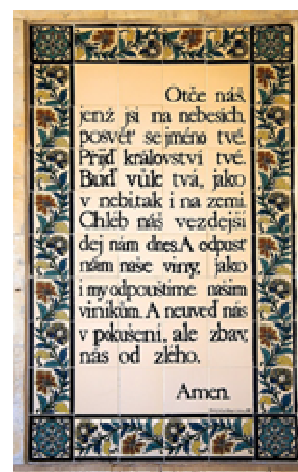 Otče náš,
jenž jsi na nebesích,
posvěť se jméno tvé.
Přijď království tvé.
Buď vůle tvá, jako
v nebi tak i na zemi.
Chléb náš vezdejší
dej nám dnes. A odpusť
nám naše viny, jako
i my odpouštíme našim
viníkům. A neuveď nás
v pokušení, ale zbav
nás od zlého.
Amen.